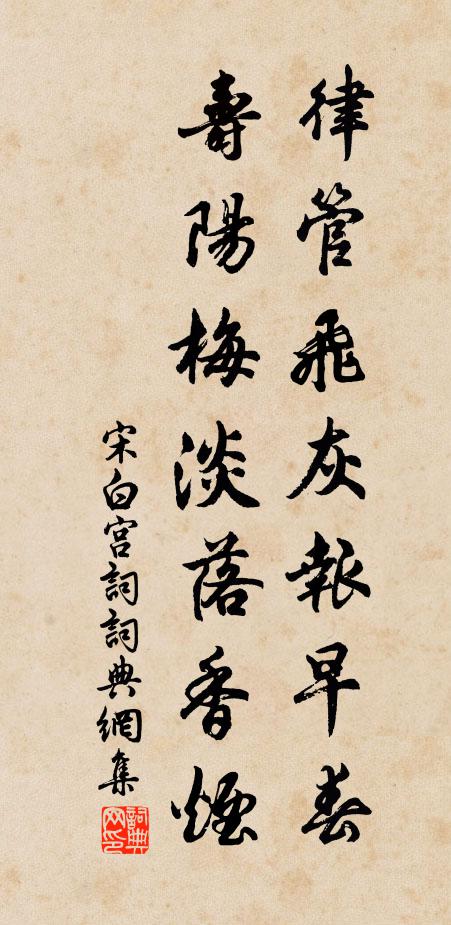 律管飛灰報早春
壽陽梅淡落香煙
宋白宮詞詞典網集
詞典
网印